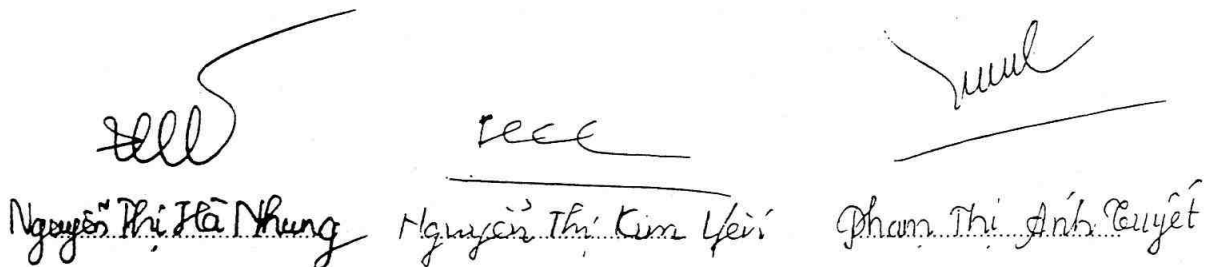 Nguyễn Thị Hà Nhung Nguyễn Thị Kim Yến Phạm Thị Ánh Tuyết